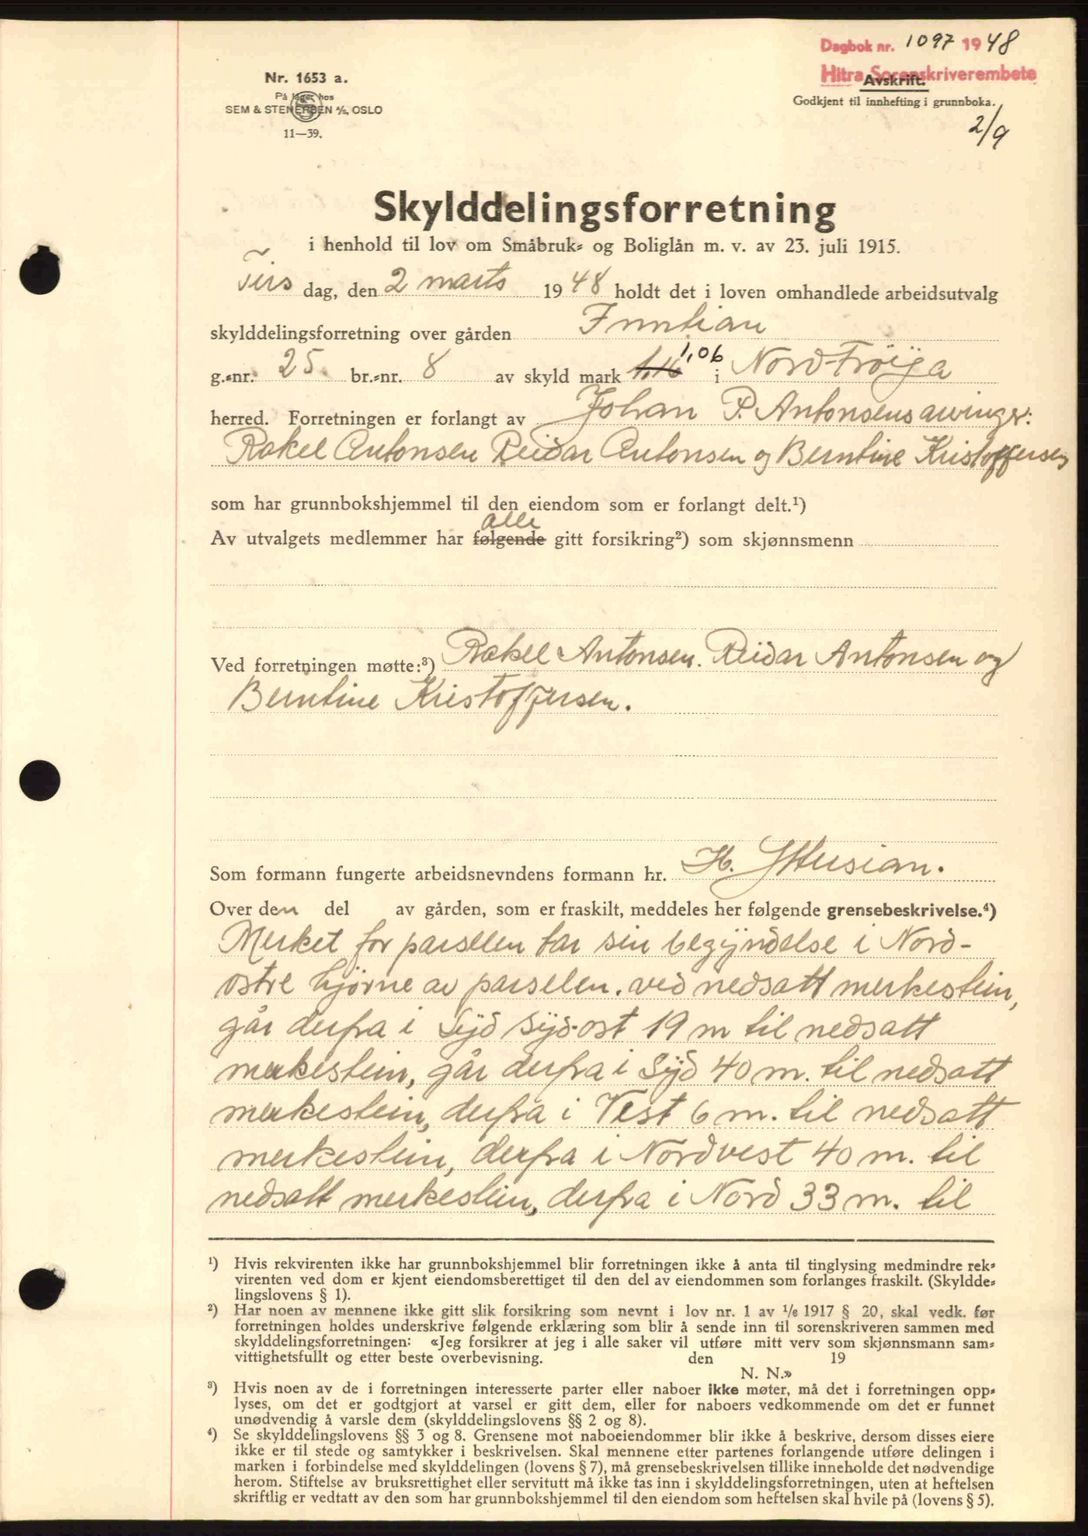 Dagbok nr. 1097 1948
Hitra Sorenskriverembete
Avskrift.
Godkjent til innhefting i grunnboka.
2/9
Nr. 1653 a.
På lager hos
SEM & STENERSEN A/S, OSLO
11—39.
Skylddelingsforretning
i henhold til lov om Småbruk- og Boliglån m. v. av 23. juli 1915.
Tirs dag, den 2 marts 1948 holdt det i loven omhandlede arbeidsutvalg
skylddelingsforretning over gården Inntian
g.-nr. 25. br.-nr. 8 av skyld mark 1,16 1,06 i Nord-Frøya
herred. Forretningen er forlangt av Johan P. Antonsens arvinger:
Rakel Antonsen Reidar Antonsen og Berntine Kristoffersen
som har grunnbokshjemmel til den eiendom som er forlangt delt.¹)
alle
Av utvalgets medlemmer har følgende gitt forsikring²) som skjønnsmenn
Ved forretningen møtte:³) Rakel Antonsen. Reidar Antonsen og
Berntine Kristoffersen.
Som formann fungerte arbeidsnevndens formann hr. H. Yttersian.
Over den del av gården, som er fraskilt, meddeles her følgende grensebeskrivelse.⁴)
Merket for parsellen tar sin begyndelse i Nord-
østre hjørne av parsellen. ved nedsatt merkestein,
går derfra i Syd syd-ost 19 m til nedsatt
merkestein, går derfra i Syd 40 m. til nedsatt
merkestein, derfra i Vest 6 m. til nedsatt
merkestein, derfra i Nordvest 40 m. til
nedsatt merkestein, derfra i Nord 33 m. til
¹) Hvis rekvirenten ikke har grunnbokshjemmel blir forretningen ikke å anta til tinglysing medmindre rek-
virenten ved dom er kjent eiendomsberettiget til den del av eiendommen som forlanges fraskilt. (Skyldde-
lingslovens § 1).
²) Har noen av mennene ikke gitt slik forsikring som nevnt i lov nr. 1 av 1/6 1917 § 20, skal vedk. før
forretningen holdes underskrive følgende erklæring som blir å sende inn til sorenskriveren sammen med
skylddelingsforretningen: «Jeg forsikrer at jeg i alle saker vil utføre mitt verv som skjønnsmann sam-
vittighetsfullt og etter beste overbevisning. den 19
N. N.»
³) Hvis noen av de i forretningen interesserte parter eller naboer ikke møter, må det i forretningen opp-
lyses, om det er godtgjort at varsel er gitt dem, eller for naboers vedkommende om det er funnet
unødvendig å varsle dem (skylddelingslovens §§ 2 og 8).
⁴) Se skylddelingslovens §§ 3 og 8. Grensene mot naboeiendommer blir ikke å beskrive, dersom disses eiere
ikke er til stede og samtykker i beskrivelsen. Skal mennene etter partenes forlangende utføre delingen i
marken i forbindelse med skylddelingen (lovens § 7), må grensebeskrivelsen tillike inneholde det nødvendige
herom. Stiftelse av bruksrettighet eller servitutt må ikke tas inn i skylddelingsforretningen, uten at heftelsen
skriftlig er vedtatt av den som har grunnbokshjemmel til den eiendom som heftelsen skal hvile på (lovens § 5).